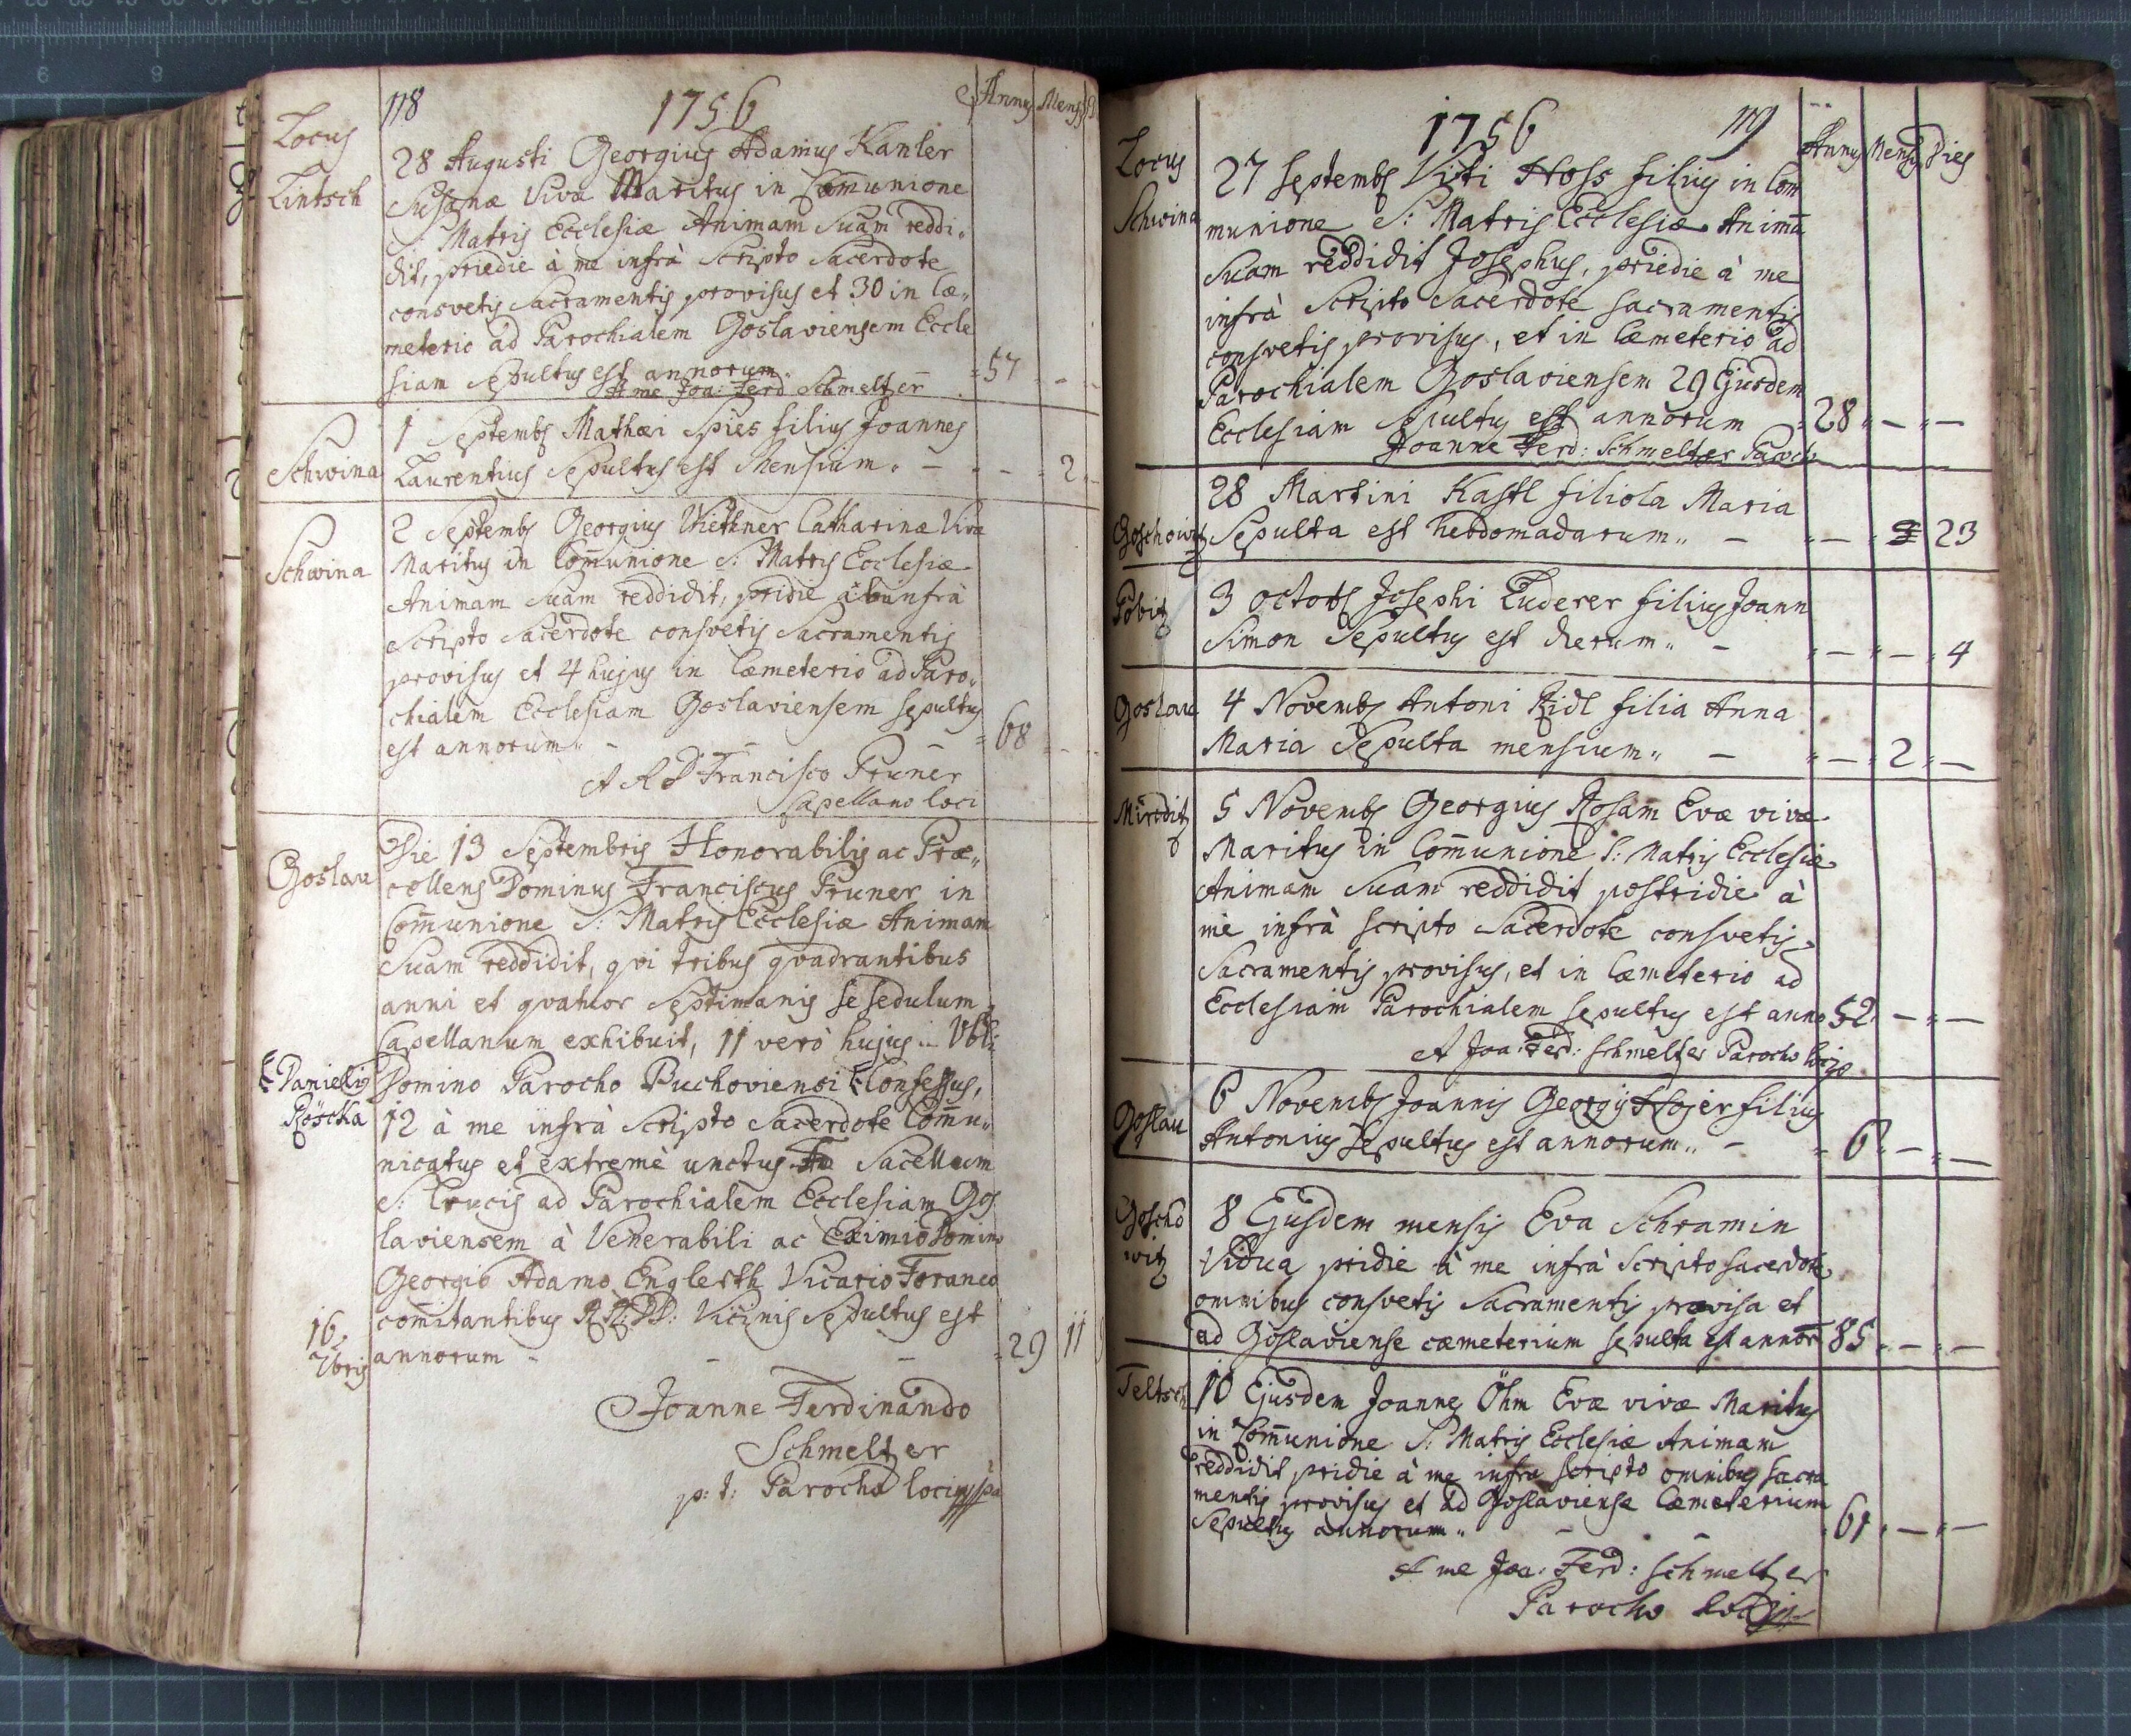 118
1756
Annus Mens
Locus
Lintsch
28 Augusti Georgius Adamus Kanler
Susanæ Vivæ Maritus in Com̄unione
S: Matris Ecclesiæ Animam Suam reddi„
dit, priedie à me infrà Scripto Sacerdote
consvetis Sacramentis provisus et 30 in Cæ„
meterio ad Parochialem Goslaviensem Eccle
siam Sepultus est annorum. 57
A me Joa: Ferd Schmeltzer
Schwina
1 Septembs Mathæi Spies filius Joannes
Laurentius Sepultus est Mensium. 2
Schwina
2 Septembs Georgius Wiethner Catharinæ Vivæ
Maritus in Com̄unione S: Matris Ecclesiæ
Animam Suam reddidit, pridie infrà
Scripto Sacerdote consvetis Sacramentis
provisus et 4 hujus in Cæmeterio ad Paro„
chialem Ecclesiam Goslaviensem sepultus
est annorum„ 68
A R D Francisco Pruner
Capellano loci
Goslau
Die 13 Septembris Honorabilis ac Præ„
collens Dominus Franciscus Pruner in
Com̄unione S: Matris Ecclesiæ Animam
Suam reddidit, qvi tribus qvadrantibus
anni et qvatuor Septimanis se sedulum
Capellanum exhibuit, 11 verò hujus
Danielis
Domino Parocho Puchoviensi Confessus,
12 à me infrà Scripto Sacerdote Com̄u„
nicatus et extremè unctus Sacellum
S: Crucis ad Parochialem Ecclesiam Gos
laviensem à Venerabili ac Eximio Domino
Georgio Adamo Englerth Vicario Foraneo
com̄itantibus RR: DD: Vicinis Sepultus est
16
7bris
annorum 29 11
Joanne Ferdinando
Schmeltzer
p: t: Parocho loci
1756
119
Annus Mens Dies
Locus
Schwina
27 Septembs Viti Hoss filius in Com
munione S: Matris Ecclesiæ Animā
Suam reddidit Josephus, priedie à me
infrà Scripto Sacerdote sacramentis
consvetis provisus, et in Cæmeterio ad
Parochialem Goslaviensem 29 Ejusdem
Ecclesiam Sepultus est annorum 28
Joanne Ferd: Schmeltzer Paroch
28 Martini Kastl filiola Maria
Goschowitz
Sepulta est hebdomadarum„ 23
Pobitz
3 Octobs Josephi Luderer filius Joann
Simon Sepultus est dierum„ 4
Goslau
4 Novembs Antoni Ridl filia Anna
Maria Sepulta mensium„ 2
Miroditz
5 Novembs Georgius Rosam Evæ vivæ
Maritus in Com̄unione S: Matris Ecclesiæ
Animam Suam reddidit postridie à
me infrà scripto Sacerdote consvetis
Sacramentis provisus, et in Cæmeterio ad
Ecclesiam Parochialem sepultus est anno 52
A Joa: Ferd: Schmeltzer Parocho
Goslau
6 Novembs Joannis Georgij Hojer filius
Antonius Sepultus est annorum„ 6
Goscho
witz
8 Ejusdem mensis Eva Schramin
Vidua pridie à me infrà Scripto sacerdote
omnibus consvetis Sacramentis provisa et
ad Goslaviense cæmeterium sepulta est annor 85
Teltsch
10 Ejusdem Joannes Öhm Evæ vivæ Maritus
in Com̄unione S: Matris Ecclesiæ Animam
reddidit pridie à me infra scripto omnibus sacra
mentis provisus et ad Goslaviense Cæmeterium
Sepultus annorum„ 61
A me Joa: Ferd: Schmeltzer
Parocho